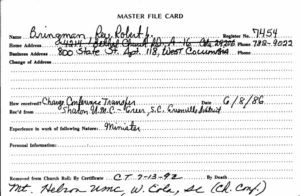 MASTER FILE CARD
Name Bringman, Rev. Robert J. Register No. 7454
Home Address Bethel Church Rd. A-16 Cola 29206 Phone 782-9022
Business Address 800 State St. Apt. 118, West Columbia Phone
Change of Address
How received? Charge Conference Transfer Date 6/8/86
Rec'd from Sharon U.M.C. - Greer, S.C. Greenville District
Experience in work of following Nature: Minister
Personal Information:
Removed from Church Roll; By Certificate CT 7-13-92 By Death
Mt. Hebron UMC, W. Cola, SC (Ch. Conf.)